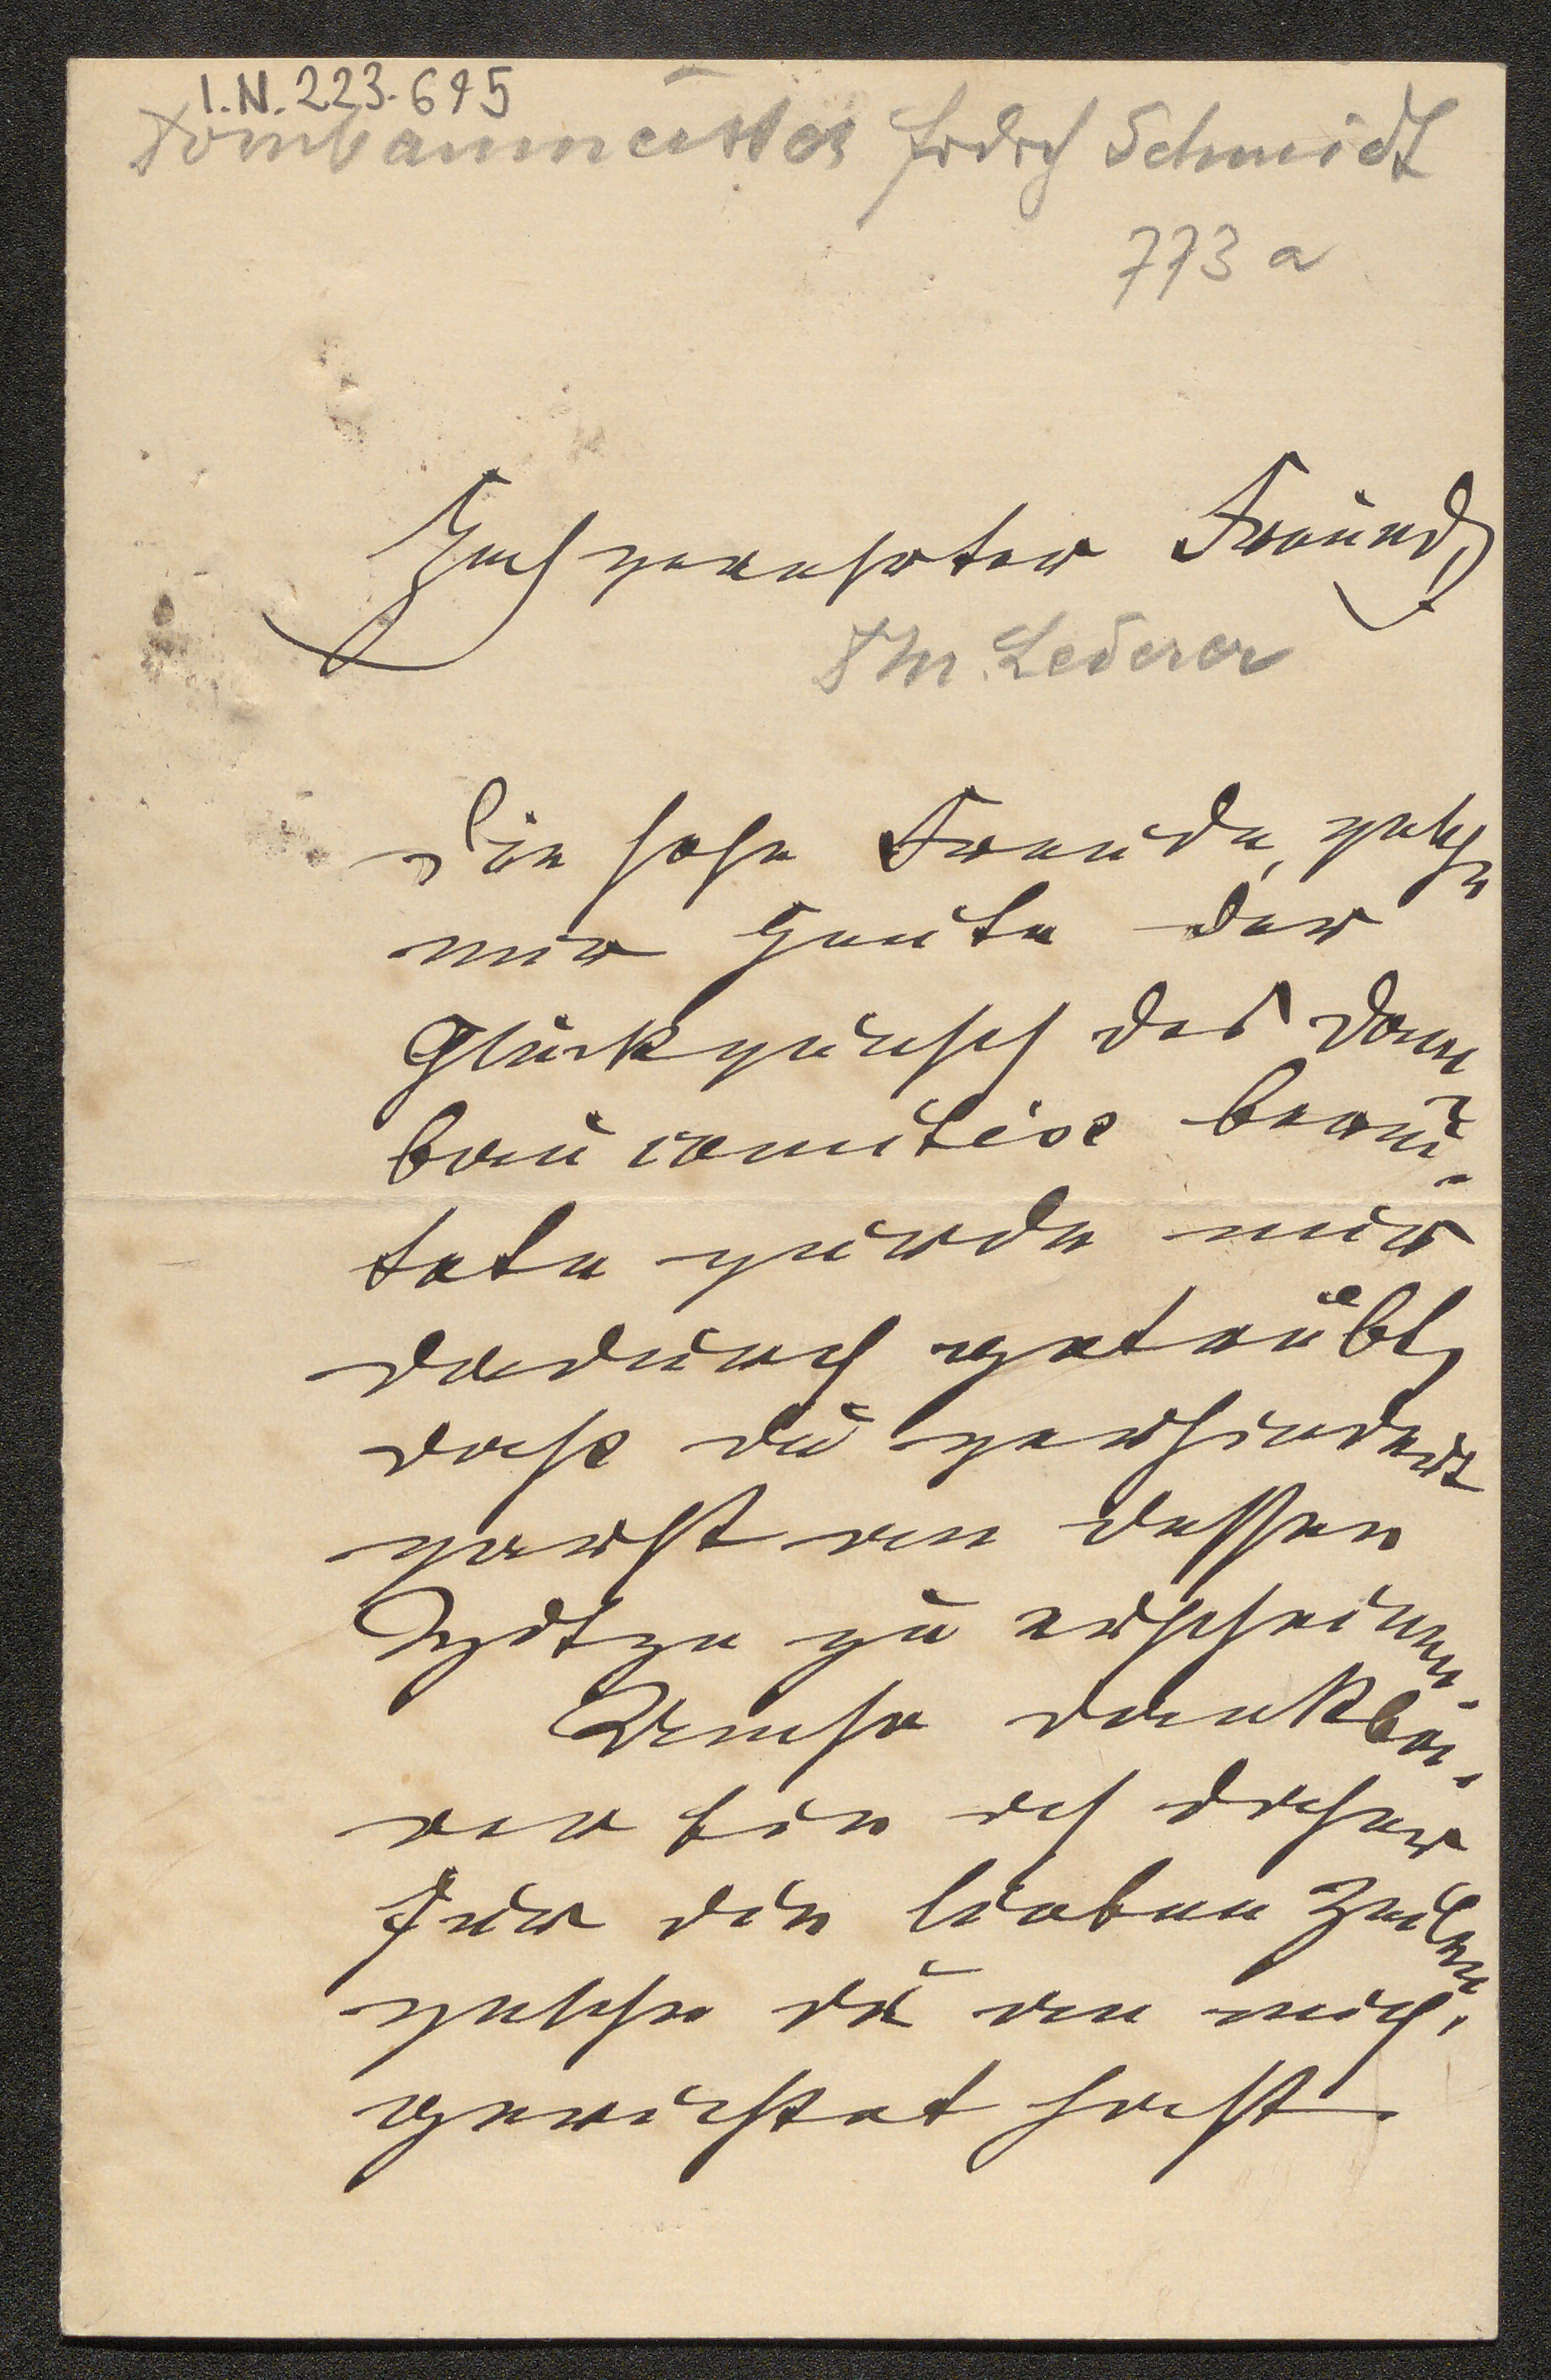 I.N. 223.695
Dombaumeister Frdrch Schmidt
773 a
Hochverehrter Freund,
Thr. Lederer
Die hohe Freude, welche
mir heute der
Glückwunsch des Dom
baucomitées berei-
tete wurde mir
dadurch getrübt,
dass du verhindert
warst an dessen
Spitze zu erscheinen.
Umso dankba-
rer bin ich daher
für die lieben Zeilen
welche du an mich
gerichtet hast